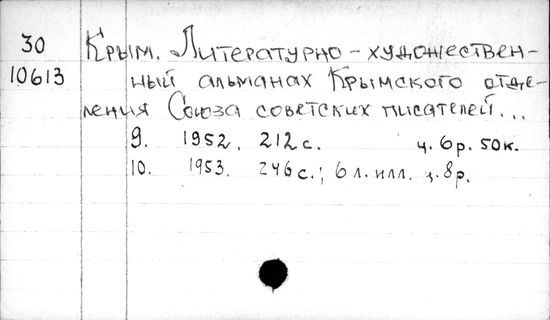 30 Крым. Литературно-художествен-
10613 ный альманах Крымского отде-
ления Союза советских писателей...
9. 1952. 212 с. ц. 6 р. 50 к.
10. 1953. 246 с.; 6 л. илл. ц. 8 р.